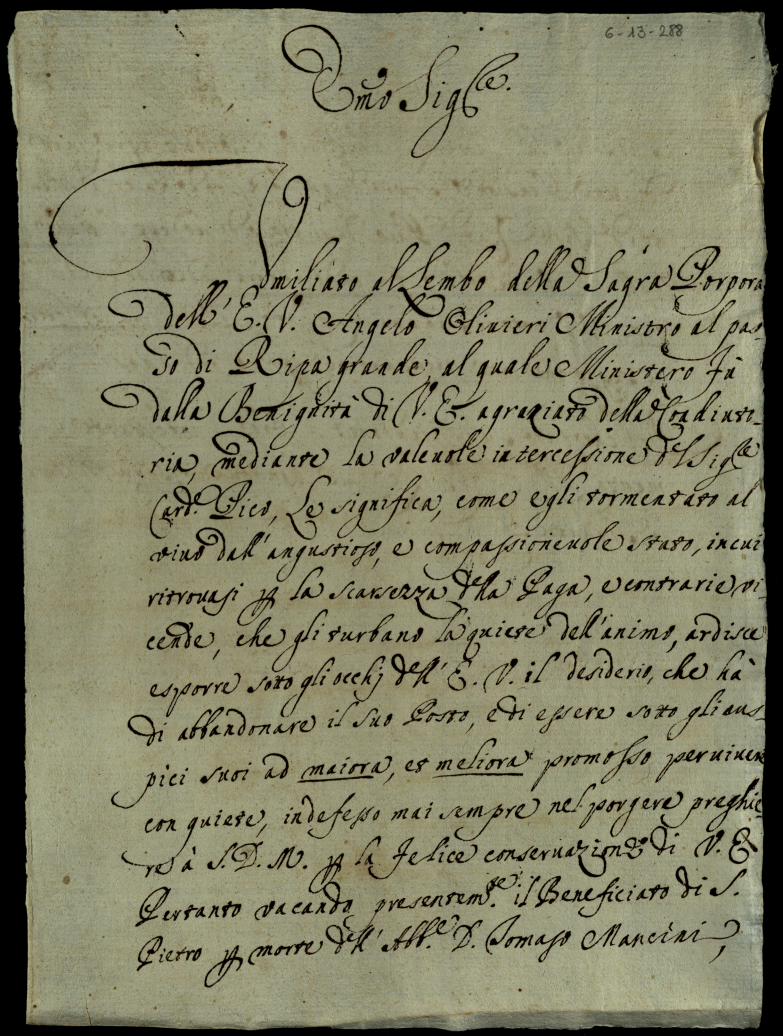 6-13-288
Emo Sig.le
Umiliato al Lembo della Sagra Porpora
dell' E. V. Angelo Olivieri Ministro al pas-
so di Ripa grande, al quale Ministero fù
dalla Benignità di V. E. agraziato della Coadiuto-
ria, mediante la valeuole intercessione del Sig.le
Card. Pico, Le significa, come egli tormentato al
viuo dall' angustioso, e compassioneuole stato, in cui
ritrouasi p la scarsezza della Paga, e contrarie vi-
cende, che gli turbano la quiete dell' animo, ardisce
esporre sotto gli occhj dell' E. V. il desiderio, che hà
di abbandonare il suo Posto, e di essere sotto gli aus-
pici suoi ad maiora, et meliora promosso per viuer
con quiete, indefesso mai sempre nel porgere preghie-
re à S. D. M. p la felice conseruazione di V. E.
Pertanto vacando presentem.te il Beneficiato di S.
Pietro p morte dell' Abb.e D. Tomaso Mancini,